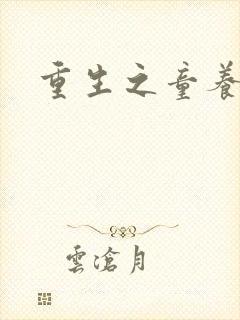 重生之童養
雲滄月